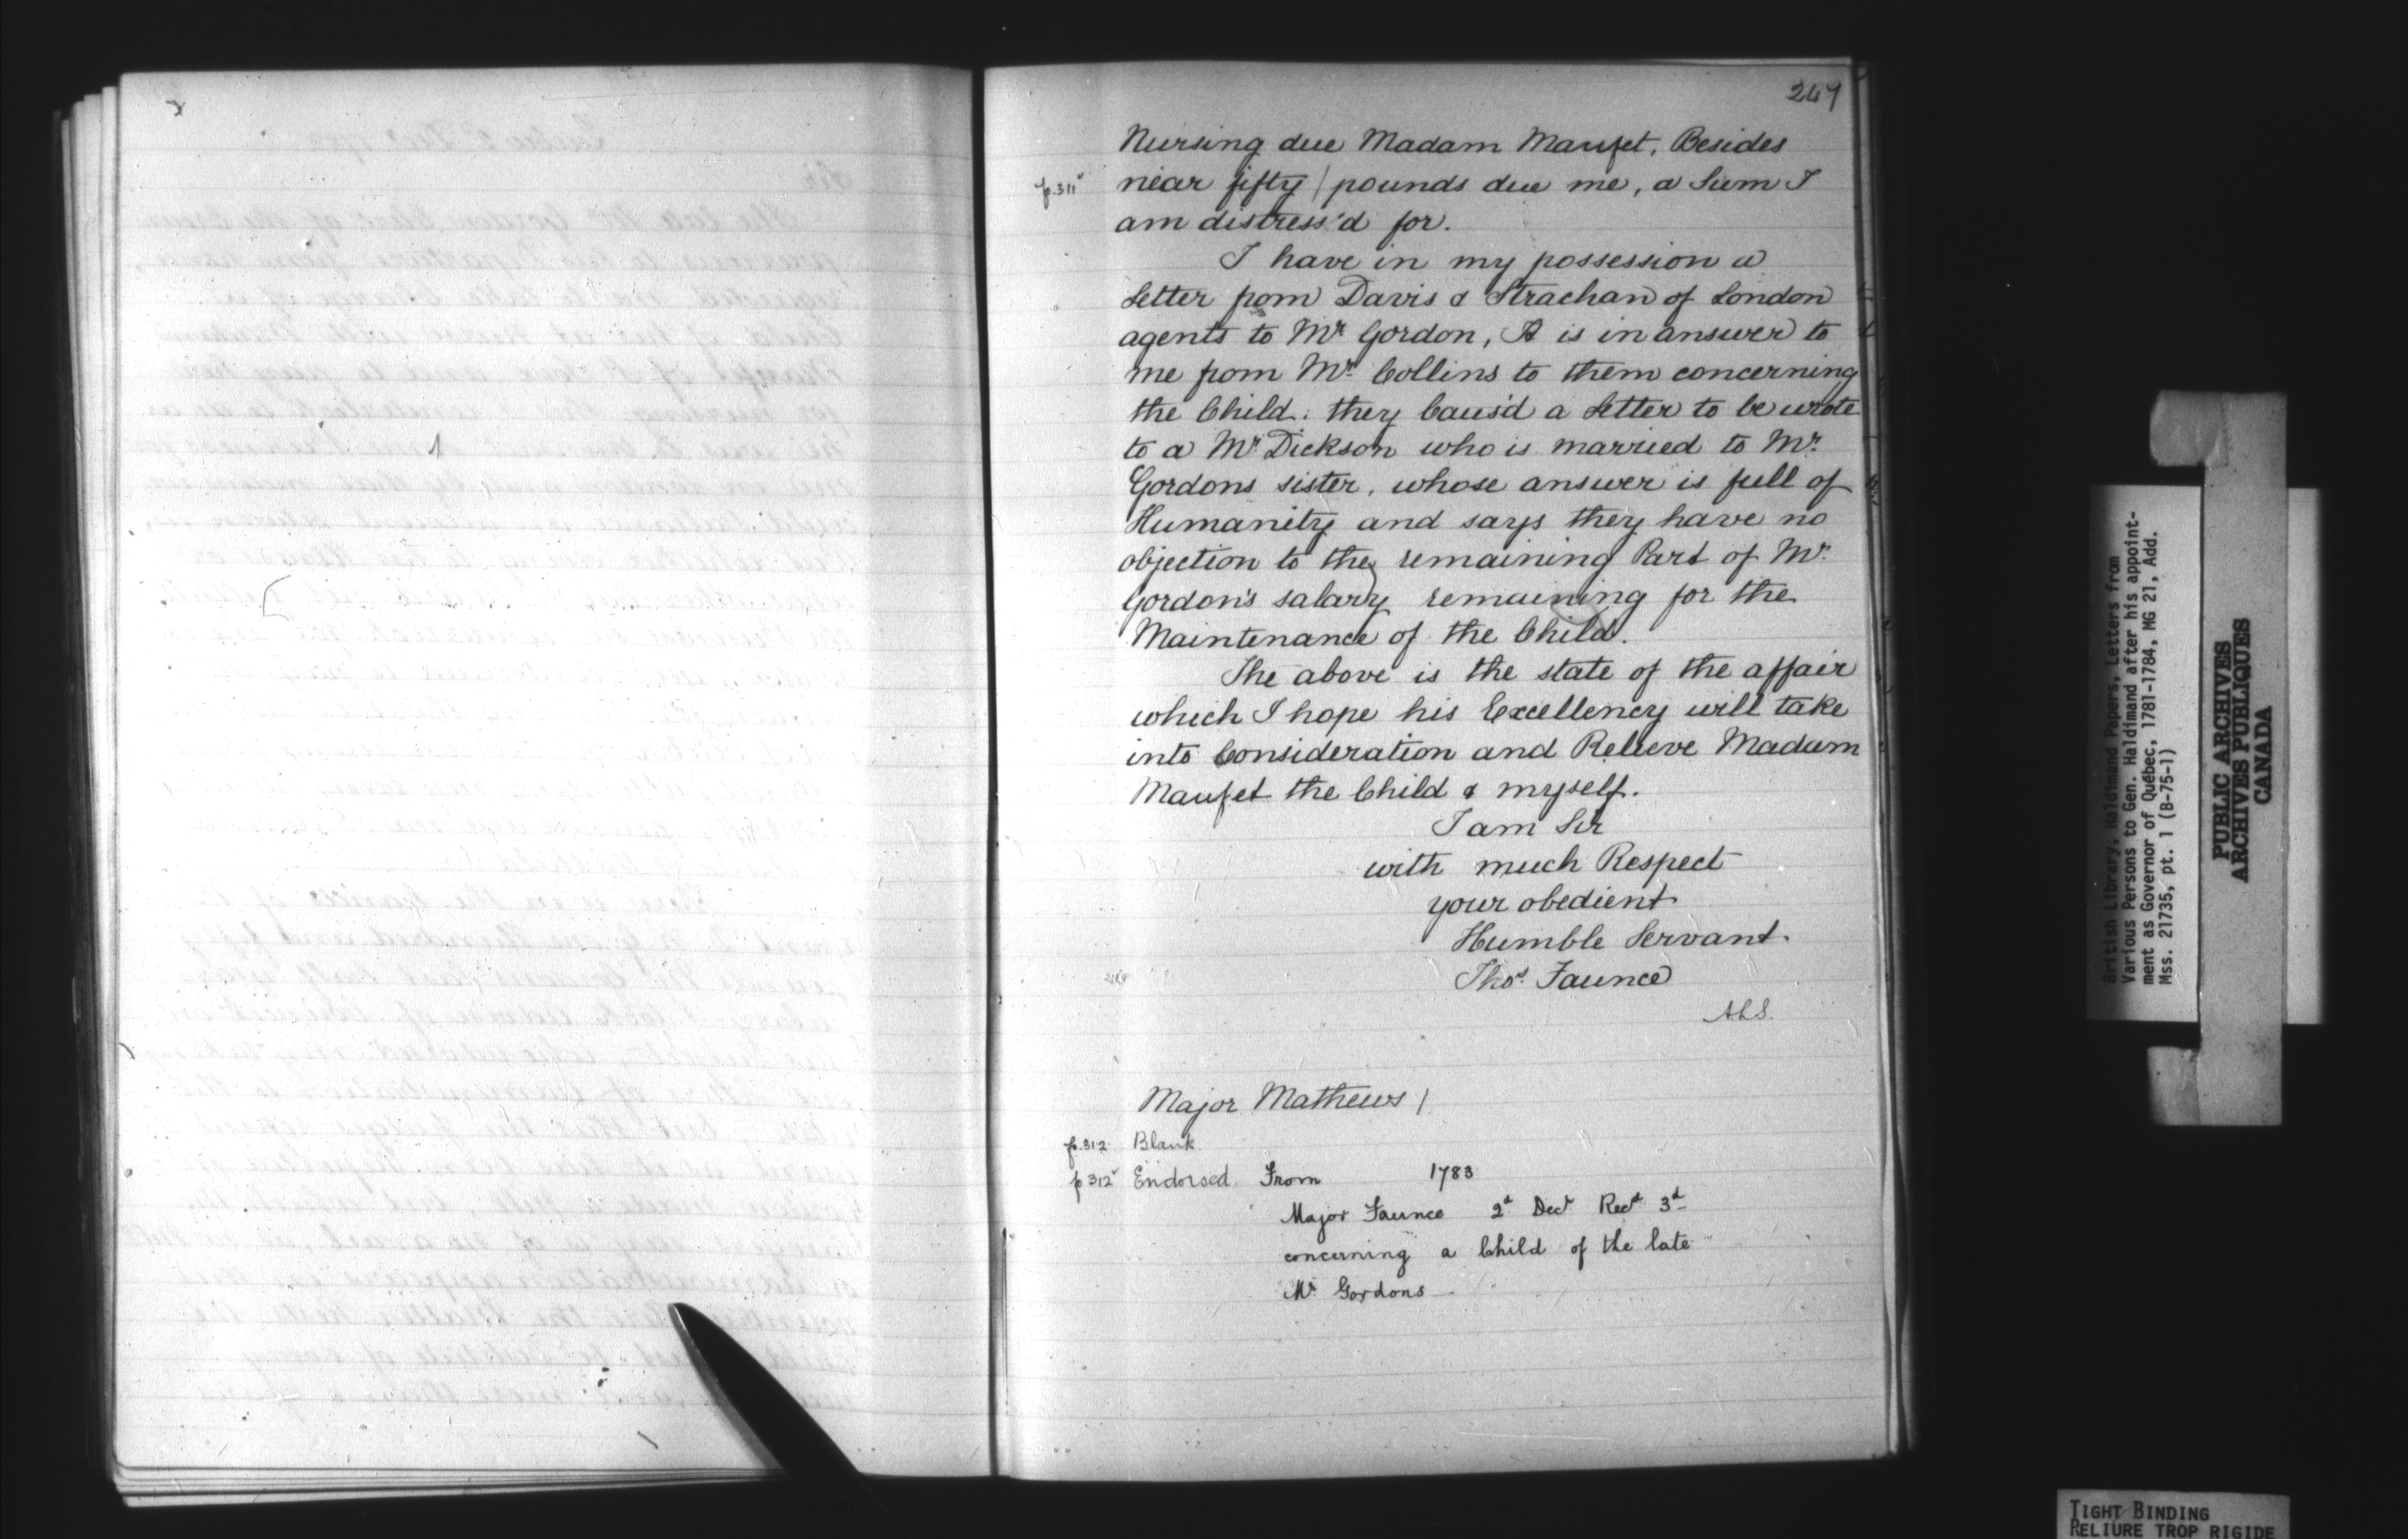 247
Nursing due Madam Maufet, Besides
p.311v near fifty / pounds due me, a Sum I
am distress'd for.
I have in my possession a
Letter from Davis & Strachan of London
agents to Mr Gordon, It is in answer to
me from Mr Collins to them concerning
the Child: they Caus'd a Letter to be wrote
to a Mr Dickson who is married to Mr
Gordons sister, whose answer is full of
Humanity and says they have no
objection to the remaining Part of Mr
Gordon's salary remaining for the
Maintenance of the Child.
The above is the state of the affair
which I hope his Excellency will take
into Consideration and Relieve Madam
Maufet the Child & myself.
I am Sir
with much Respect
your obedient
Humble Servant.
Thos Faunce
A.L.S.
Major Mathews /
p.312 Blank
p312v Endorsed From 1783
Major Faunce 2d Decr Recd 3d
concerning a Child of the late
Mr Gordons
British Library, Haldimand Papers, Letters from
Various Persons to Gen. Haldimand after his appoint-
ment as Governor of Quebec, 1781-1784, MG 21, Add.
Mss. 21735, pt. 1 (B-75-1)
PUBLIC ARCHIVES
ARCHIVES PUBLIQUES
CANADA
TIGHT BINDING
RELIURE TROP RIGIDE